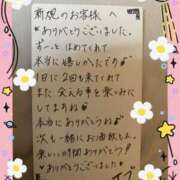 新規のお客様 へ
ありがとうございました。
ずーっと ほめてくれて
本当に嬉しかったです
1日に2回も来てくれて
また 会える事を楽しみに
してますね
本当にありがとう
次も一緒にお
楽しい時間ありがとう!
ありがとうございました